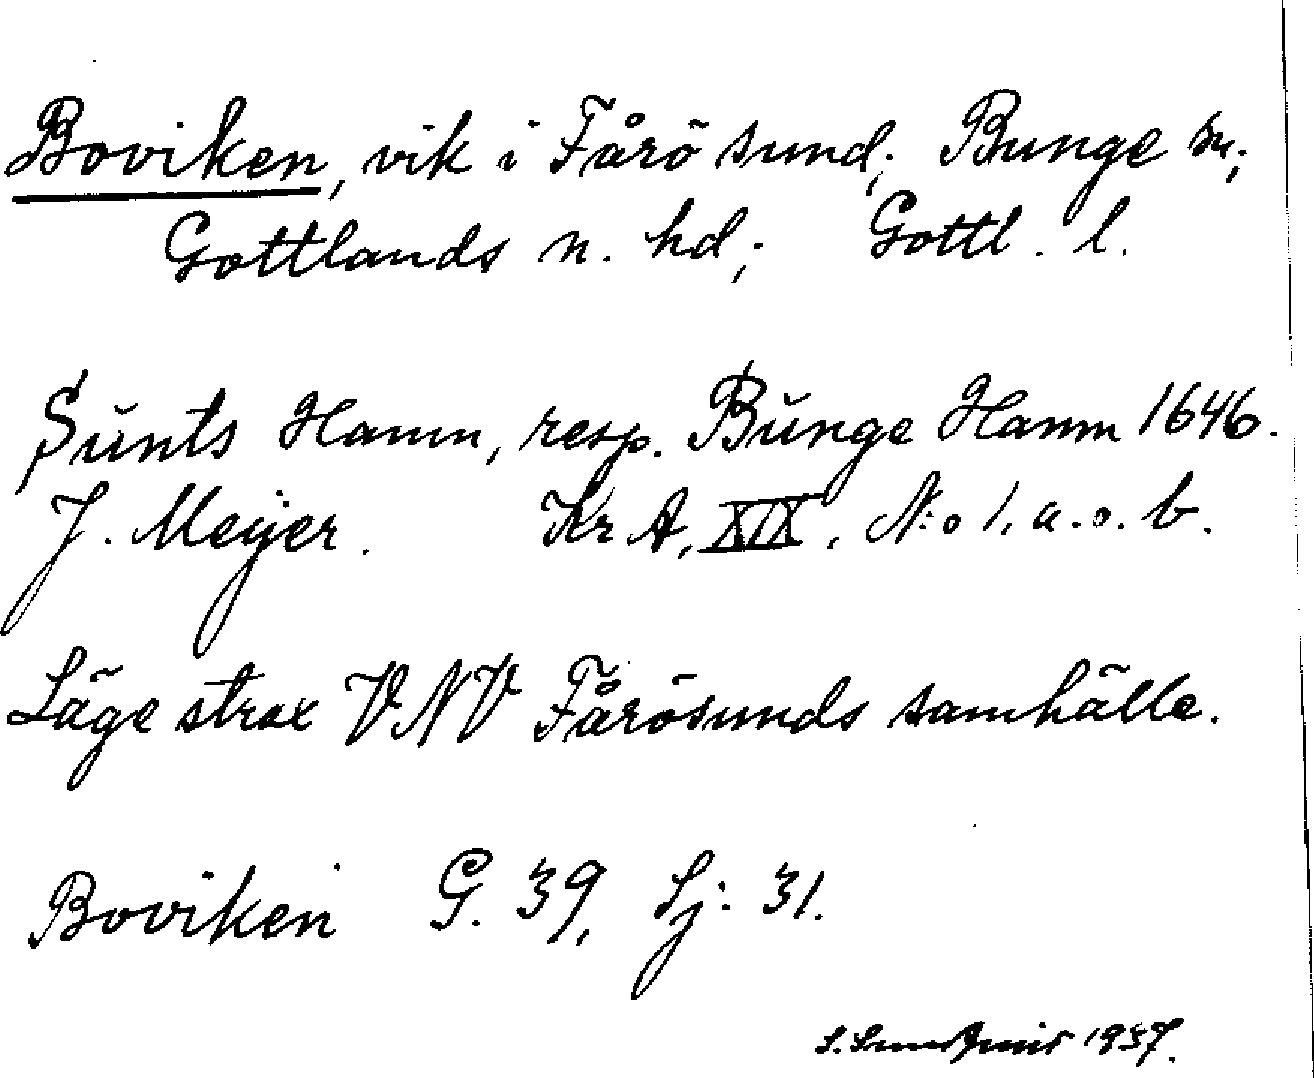 Boviken, vik i Fårösund; Bunge sn;
Gottlands n. hd; Gottl. l.
Sŭnts Hamn, resp. Bŭnge Hamn 1646.
J. Meijer. Kr A, XIX, N:o 1. a. o. b.
Läge strax VNV Fårösunds samhälle.
Boviken G. 39, Sj: 31.
1937.